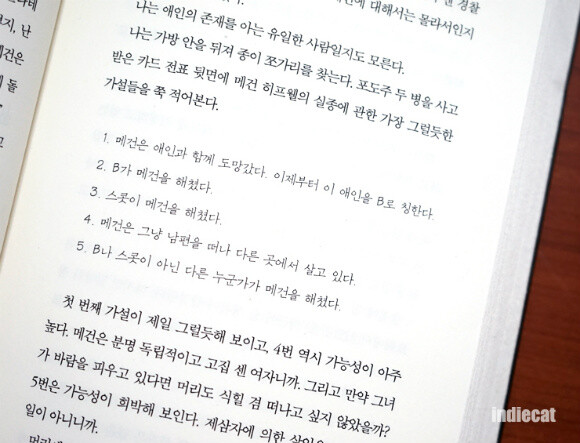 에 대해서는 몰라서인지
나는 애인의 존재를 아는 유일한 사람일지도 모른다.
나는 가방 안을 뒤져 종이 쪼가리를 찾는다. 포도주 두 병을 사고
받은 카드 전표 뒷면에 메건 히프웰의 실종에 관한 가장 그럴듯한
가설들을 쭉 적어본다.
1. 메건은 애인과 함께 도망갔다. 이제부터 이 애인을 B로 칭한다.
2. B가 메건을 해쳤다.
3. 스콧이 메건을 해쳤다.
4. 메건은 그냥 남편을 떠나 다른 곳에서 살고 있다.
5. B나 스콧이 아닌 다른 누군가가 메건을 해쳤다.
첫 번째 가설이 제일 그럴듯해 보이고, 4번 역시 가능성이 아주
높다. 메건은 분명 독립적이고 고집 센 여자니까. 그리고 만약 그녀
가 바람을 피우고 있다면 머리도 식힐 겸 떠나고 싶지 않았을까?
5번은 가능성이 희박해 보인다. 제삼자에 의한
일이 아니니까.
indiecat